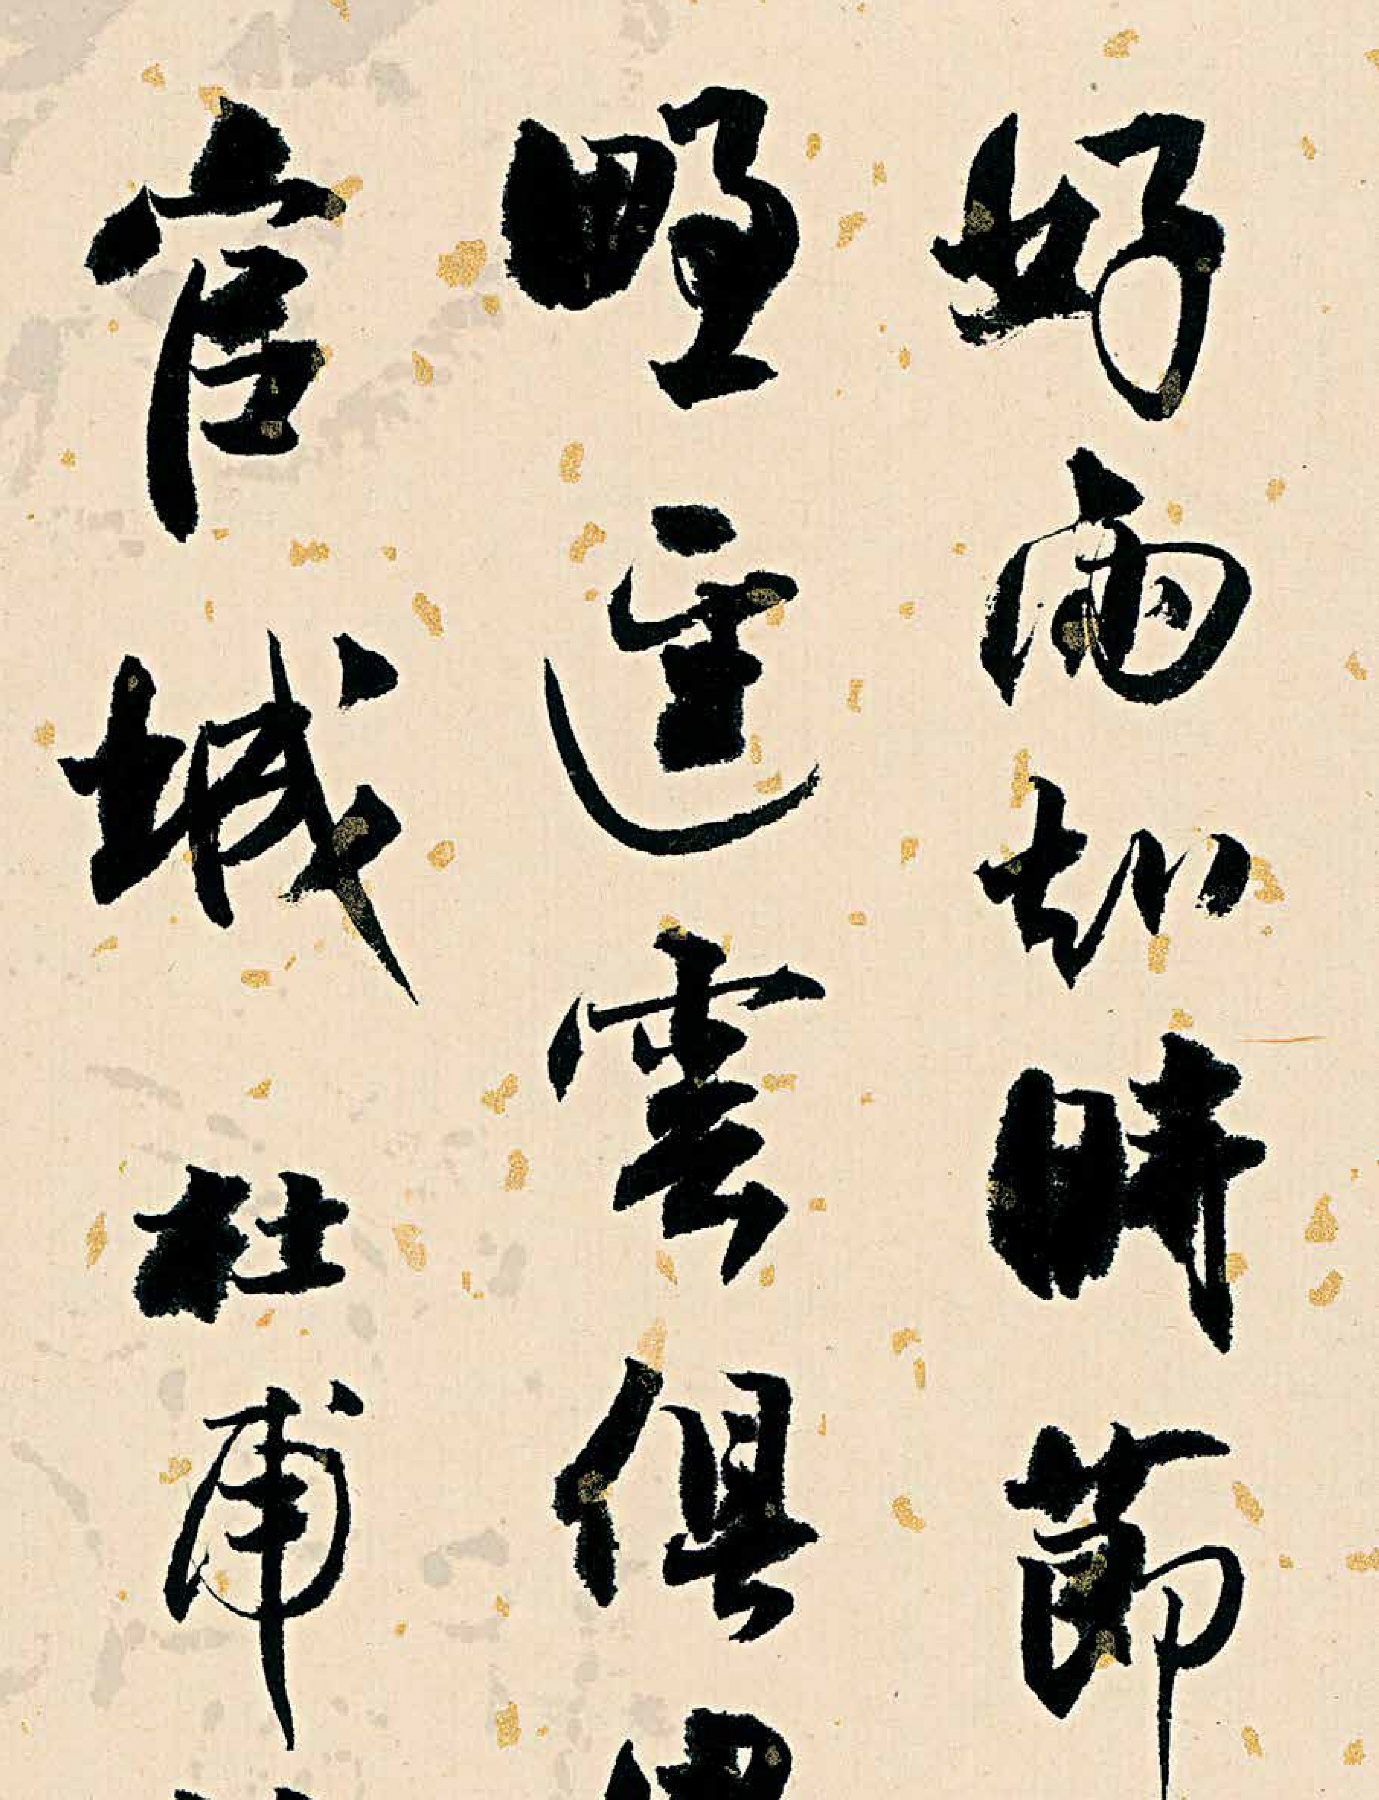 好雨知時節
野逕雲俱黑
官城杜甫